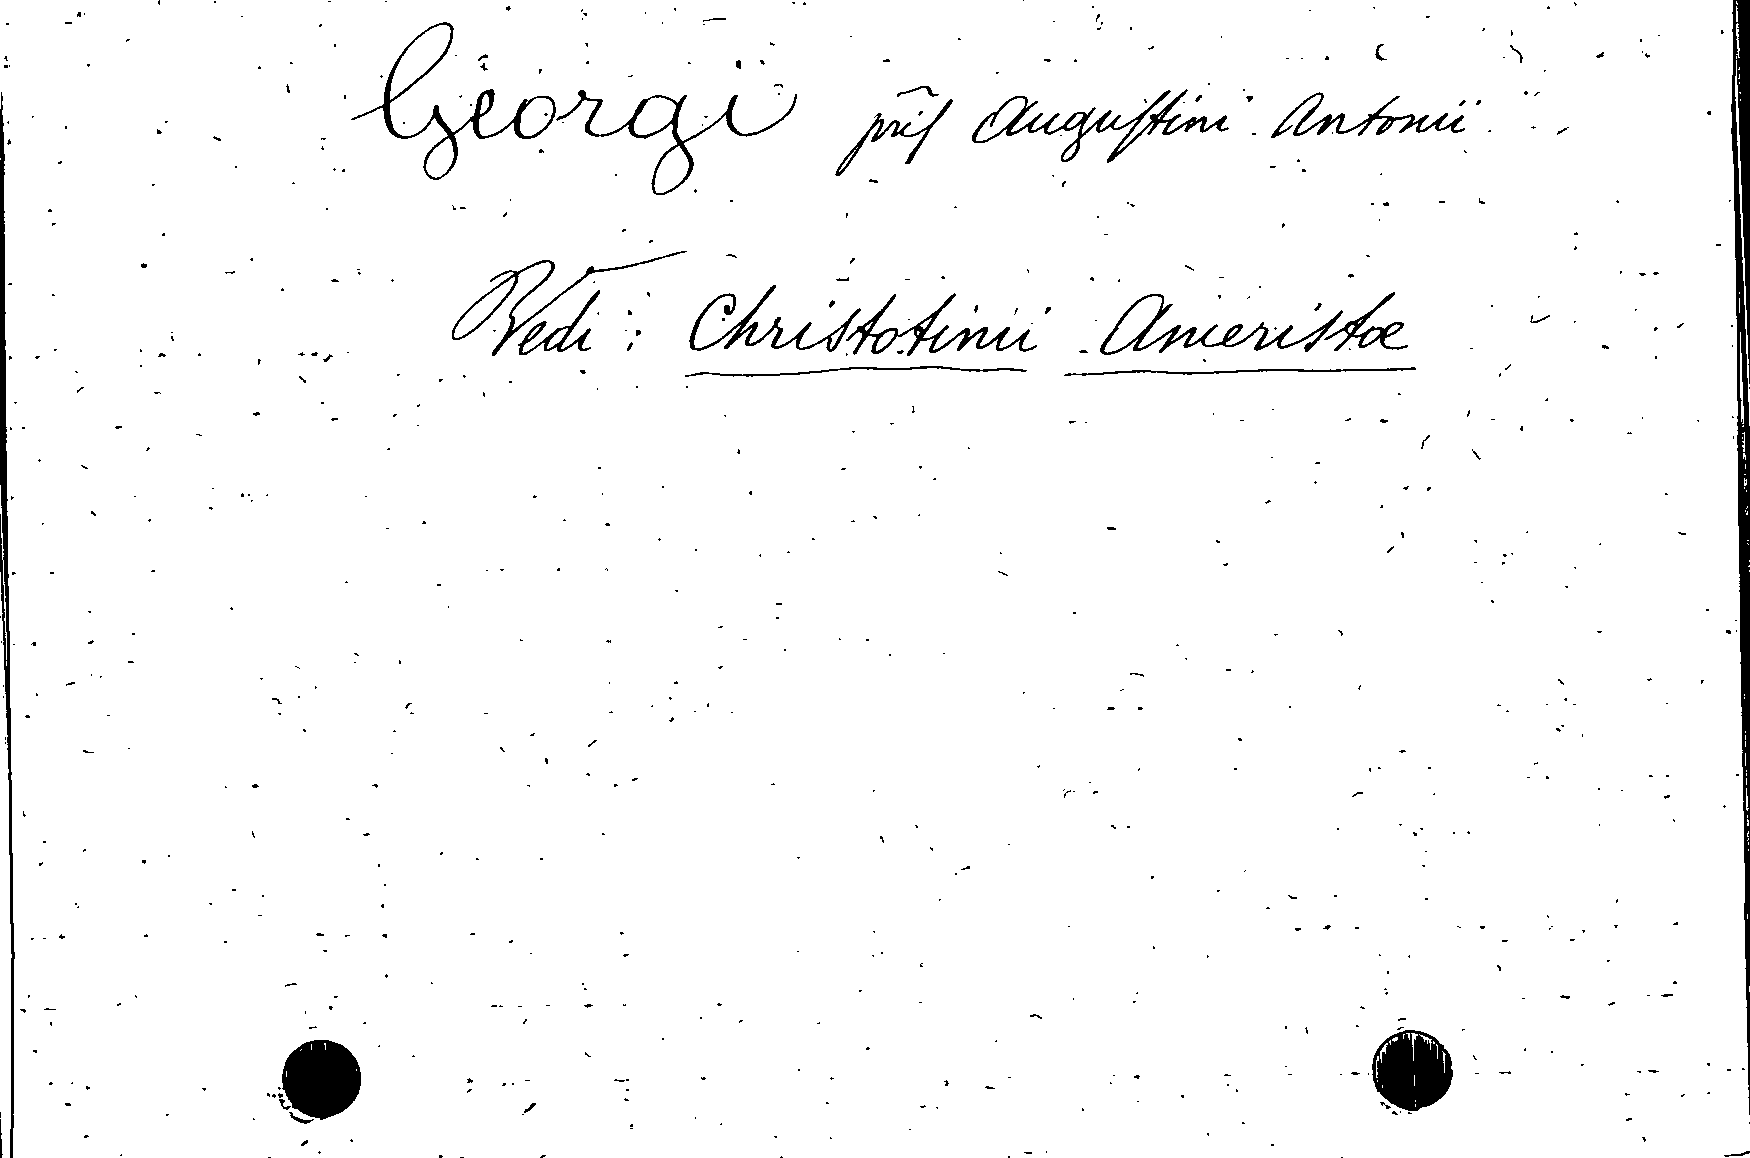 Georgi p̃ris Augustini Antonii
Vedi: Christotinii Ameristæ